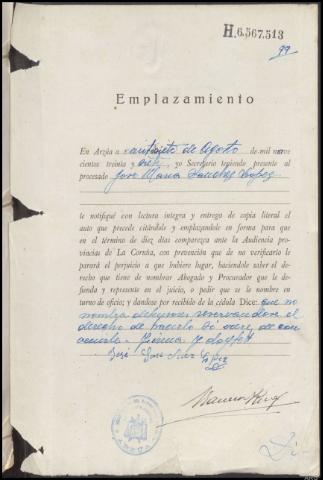 H.6.567.513
99
Emplazamiento
En Arzúa a veintisiete de Agosto de mil nove
cientos treinta y siete, yo Secretario teniendo presente al
procesado José María Sánchez López
le notifiqué con lectura íntegra y entrega de copia literal el
auto que precede citándole y emplazándole en forma para que
en el término de diez días comparezca ante la Audiencia pro-
vincias de La Coruña, con prevención que de no verificarlo le
parará el perjuicio a que hubiere lugar, haciéndole saber el de-
recho que tiene de nombrar Abogado y Procurador que le de-
fienda y represente en el juicio, o pedir que se le nombren en
turno de oficio; y dándose por recibido de la cédula Dice: que no
nombra defensores reservandose el
derecho de hacerlo
firma
José